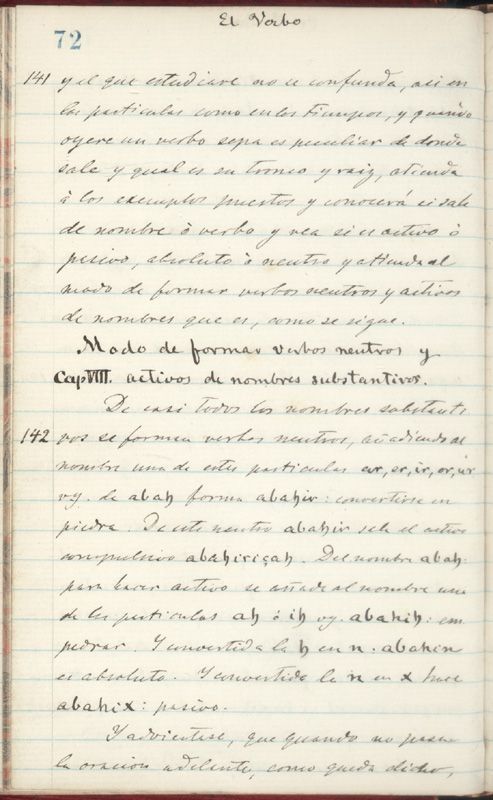 El Verbo
72
141 y el que estudiare no se confunda, asi en
las particulas como en los Tiempos, y quando
oyere un verbo sepa es peculiar de donde
sale y qual es su tronco y raiz, atienda
à los exemplos puestos y conocerá si sale
de nombre ò verbo y vea si es activo ò
pasivo, absoluto ò neutro y atienda al
modo de formar verbos neutros y activos
de nombres que es, como se sigue.
Modo de formar verbos neutros y
Cap VIII. activos de nombres substantivos.
De casi todos los nombres substanti
142 vos se forman verbos neutros, añadiendo al
nombre una de estas particulas ar, er, ir, or, ur
vg. de abah forma abahir: convertirse en
piedra. De este neutro abahir sale el activo
compulsivo abahiriçah. Del nombre abah
para hacer activo se añade al nombre una
de las particulas ah ó ih vg. abahih: em
pedrar. Y convertida la h en n. abahin
es absoluto. Y convertida la n en x hace
abahix: pasivo.
Y adviertase, que quando no pasa
la oracion adelante, como queda dicho,